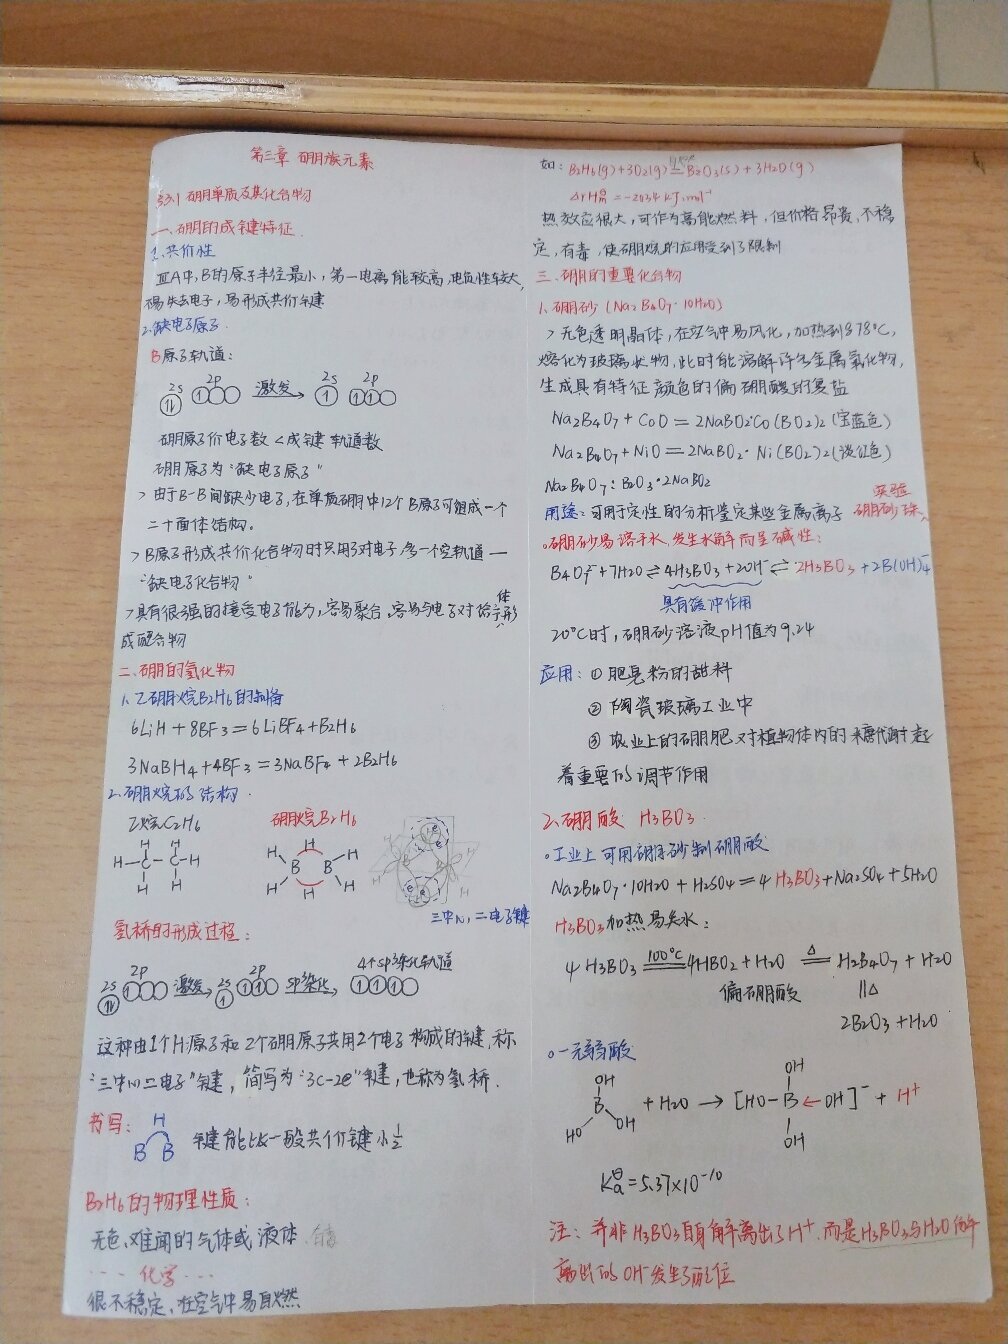 第三章 硼族元素
§3.1 硼单质及其化合物
一、硼的成键特征
1.共价性
ⅢA中,B的原子半径最小,第一电离能较高,电负性较大,
不易失去电子,易形成共价键
2.缺电子原子
B原子轨道:
2s 2p 激发 2s 2p
硼原子价电子数<成键轨道数
硼原子为"缺电子原子"
> 由于B-B间缺少电子,在单质硼中12个B原子可组成一个
二十面体结构。
> B原子形成共价化合物时只用3对电子,多一个空轨道—
"缺电子化合物"
> 具有很强的接受电子能力,容易聚合,容易与电子对给予体形
成配合物
二、硼的氢化物
1.乙硼烷B2H6的制备
6LiH+8BF3=6LiBF4+B2H6
3NaBH4+4BF3=3NaBF4+2B2H6
2.硼烷的结构
乙烷C2H6 硼烷B2H6
三中心,二电子键
氢桥的形成过程:
2s 2p 激发 2s 2p sp杂化 4个sp³杂化轨道
这种由1个H原子和2个硼原子共用2个电子构成的键,称
"三中心二电子"键,简写为"3c-2e"键,也称为氢桥.
书写:
H
B B 键能比一般共价键小½
B2H6的物理性质:
无色、难闻的气体或液体
---化学---
很不稳定,在空气中易自燃
如: B2H6(g)+3O2(g) = B2O3(s)+3H2O(g)
ΔrHm = -2034 kJ·mol⁻¹
热效应很大,可作为高能燃料,但价格昂贵,不稳
定,有毒,使硼烷的应用受到了限制
三.硼的重要化合物
1.硼砂(Na2B4O7·10H2O)
> 无色透明晶体,在空气中易风化,加热到878℃,
熔化为玻璃状物,此时能溶解许多金属氧化物,
生成具有特征颜色的偏硼酸的复盐
Na2B4O7+CoO=2NaBO2·Co(BO2)2(宝蓝色)
Na2B4O7+NiO=2NaBO2·Ni(BO2)2(淡红色)
Na2B4O7:B2O3·2NaBO2
实验
用途:可用于定性的分析鉴定某些金属离子 硼砂珠
硼砂易溶于水,发生水解而呈碱性:
B4O7²⁻+7H2O⇌4H3BO3+2OH⁻⇌2H3BO3+2B(OH)4⁻
具有缓冲作用
20℃时,硼砂溶液pH值为9.24
应用:① 肥皂粉的甜料
② 陶瓷玻璃工业中
③ 农业上的硼肥对植物体内的糖代谢起
着重要的调节作用
2.硼酸 H3BO3
工业上可用硼砂制硼酸
Na2B4O7·10H2O+H2SO4=4H3BO3+Na2SO4+5H2O
H3BO3加热易失水:
4H3BO3 =100℃= 4HBO2+H2O =Δ= H2B4O7+H2O
偏硼酸 ‖Δ
2B2O3+H2O
一元弱酸
OH OH
B +H2O → [HO-B←OH]⁻ + H⁺
HO OH OH
Ka=5.37×10⁻¹⁰
注:并非H3BO3自身解离出了H⁺,而是H3BO3与H2O解
离出的OH⁻发生了配位